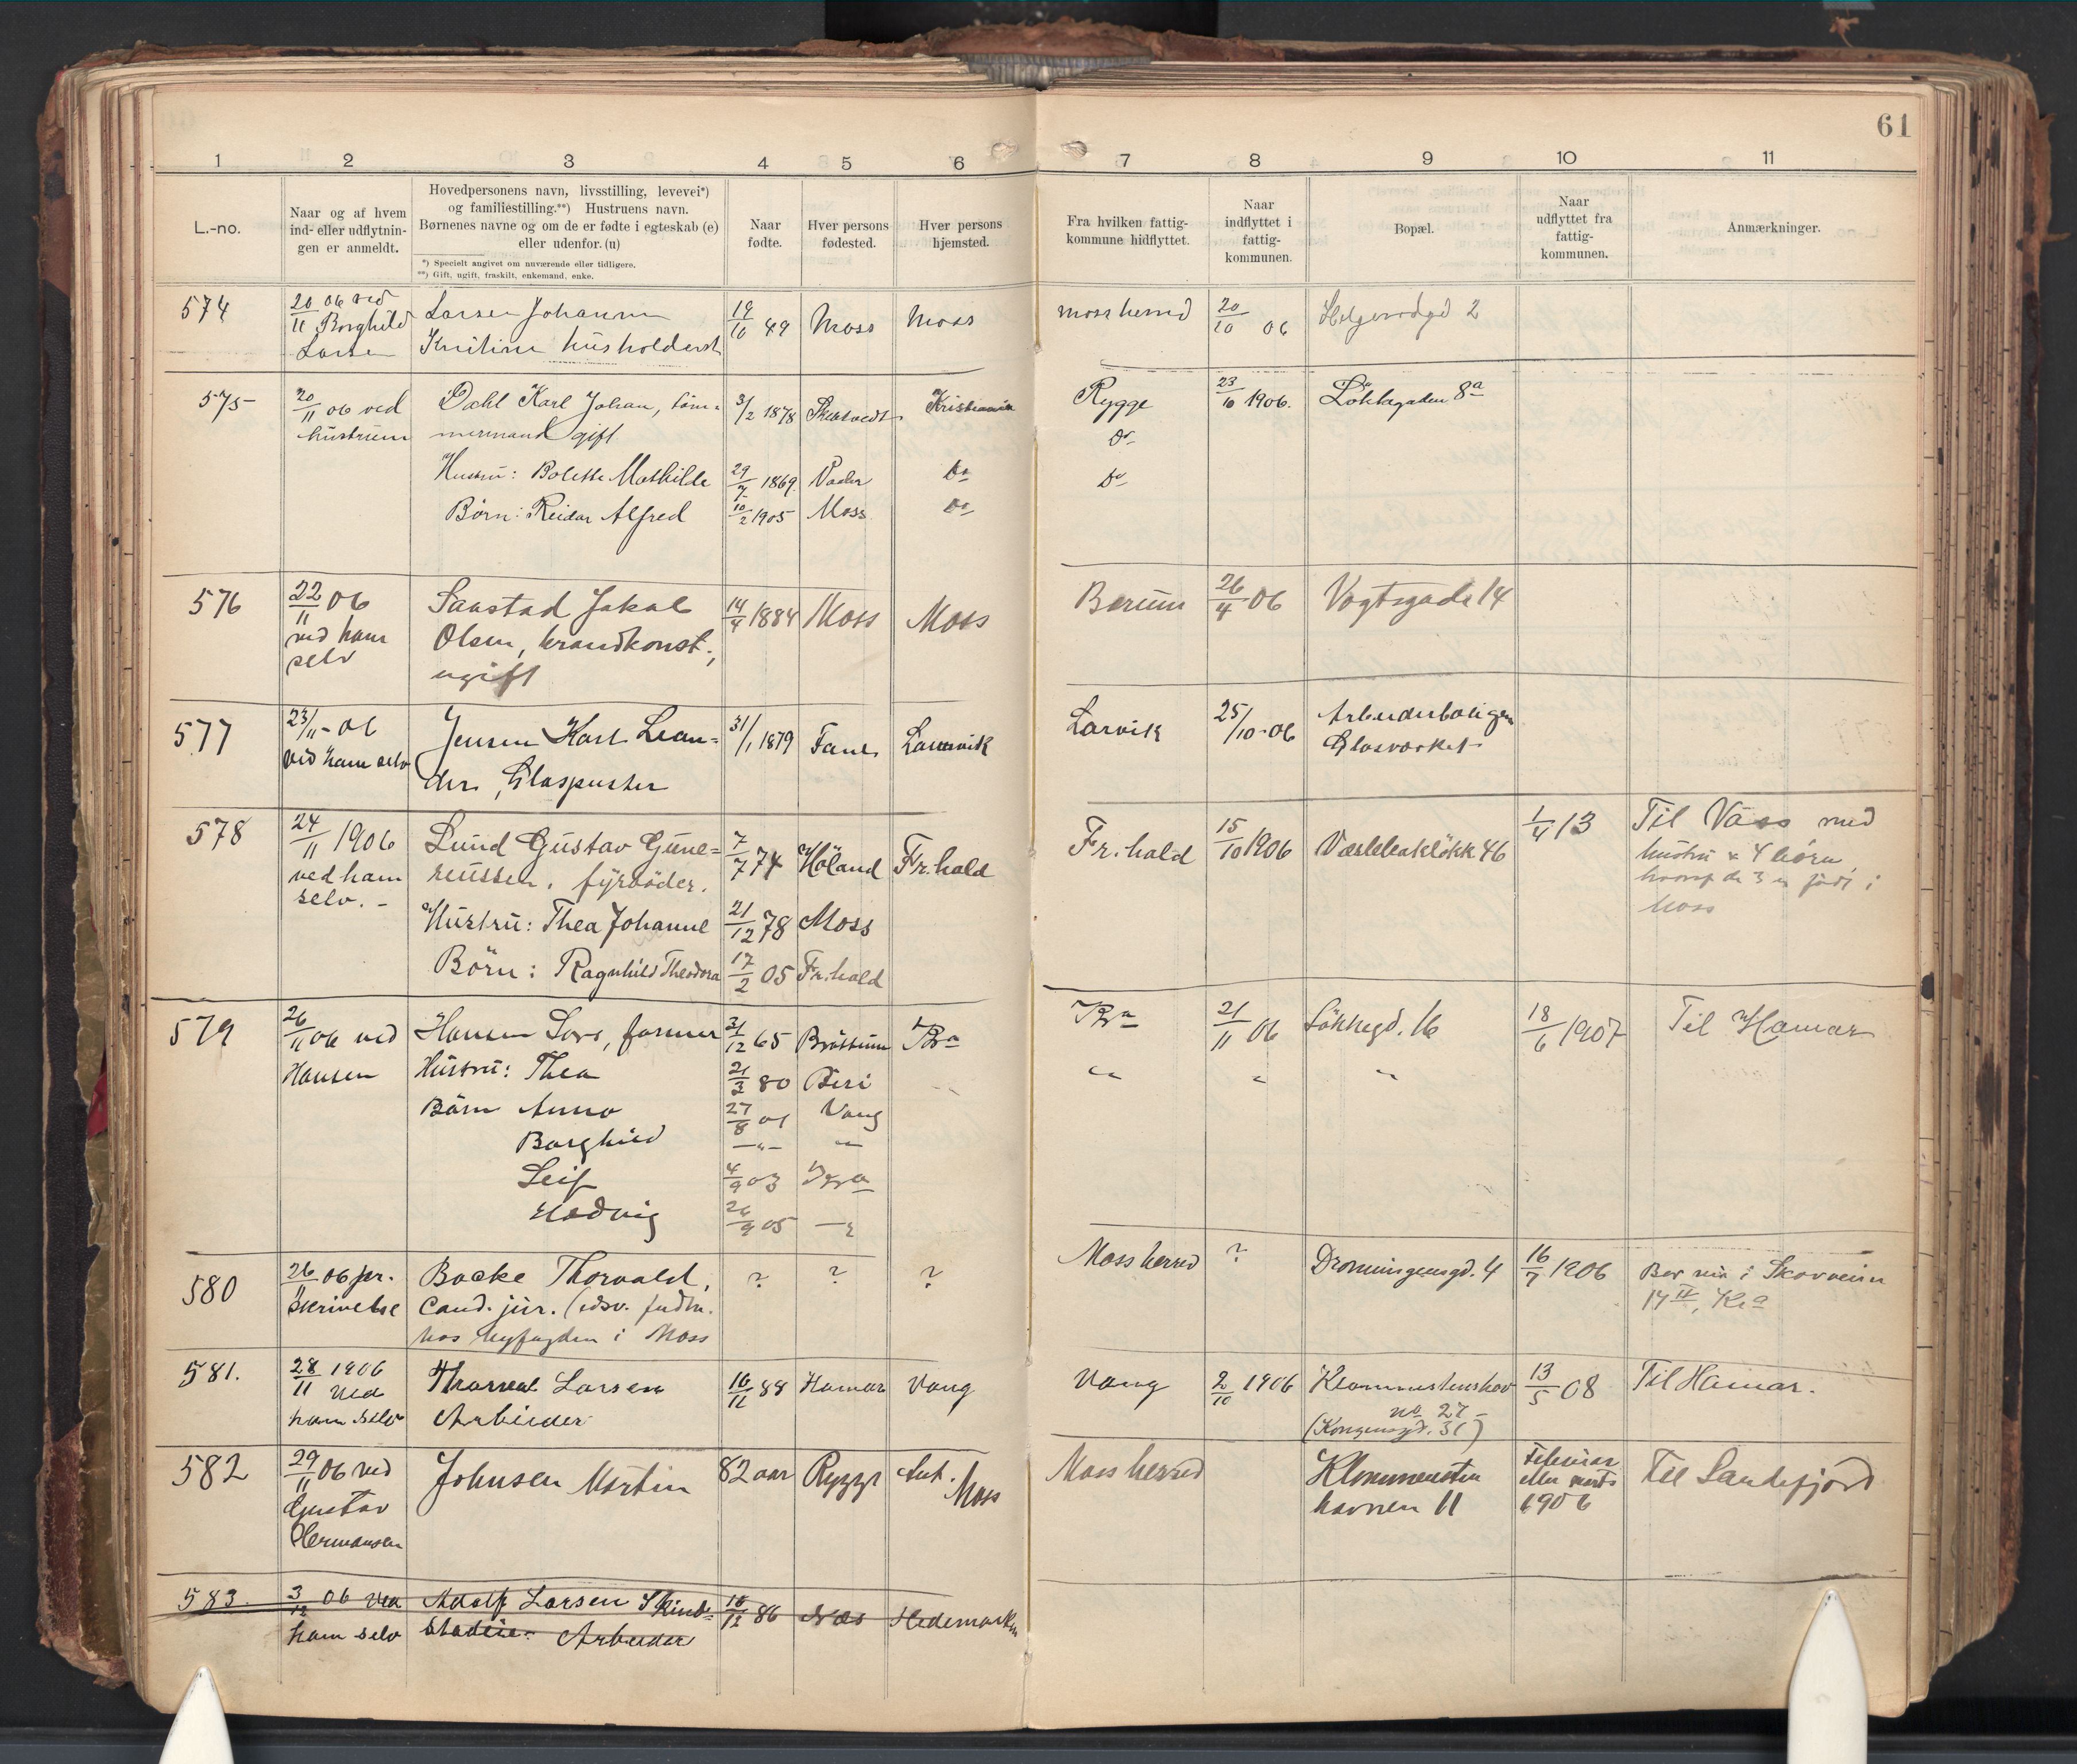 61
1 2 3 4 5 6 7 8 9 10 11
L.-no.
Naar og af hvem
ind- eller udflytnin-
gen er anmeldt.
Hovedpersonens navn, livsstilling, levevei*)
og familiestilling.**) Hustruens navn.
Børnenes navne og om de er fødte i egteskab (e)
eller udenfor. (u)
*) Specielt angivet om nuværende eller tidligere.
**) Gift, ugift, fraskilt, enkemand, enke.
Naar
fødte.
Hver persons
fødested.
Hver persons
hjemsted.
Fra hvilken fattig-
kommune hidflyttet.
Naar
indflyttet i
fattig-
kommunen.
Bopæl.
Naar
udflyttet fra
fattig-
kommunen.
Anmærkninger.
574 20/11 06 ved Larsen Johanne 19/10 49 Moss Moss Moss herred 20/10 06 2
Borghild
Larsen Kristine husholderst
575 20/11 06 ved Dahl Karl Johan, töm- 3/2 1878 Kristiania Rygge 23/10 1906. Lökkegaden 8a
hustruen mermand gift Do
Hustru: Bolette Mathilde 29/7 1869. Vaaler Do Do
Børn: Reidar Alfred 10/2 1905 Moss Do
576 22/11 06 Saastad Jakob 14/4 1884 Moss Moss Berum 26/4 06 Vogtsgade 14
ved ham Olsen, brandkonst.,
selv ugift
577 23/11-06 Jensen Karl Lean- 31/1 1879 Laurvik Larvik 25/10-06 Arbeiderboligen
ved ham selv der, Glaspuster Glasværket
578 24/11 1906 Lund Gustav Gune- 7/7 74 Höland Fr.hald Fr.hald 15/10 1906 46 1/4 13 Til Vaas med
ved ham reussen, fyrböder. hustru & 4 börn
selv. - hvoraf de 3 er född i
Moss
Hustru: Thea Johanne 21/12 78 Moss
Börn: Ragnhild Theodora 17/2 05 Fr.hald
579 26/11 06 ved Hansen Lars, former 31/12 65 Bröttum Kra Kra 21/11 06 Løkkegd. 16 18/6 1907 Til Hamar
Hansen Hustru: Thea 21/3 80 Biri " " "
Börn Anna 27/8 01 Vang
Borghild -"- "
Leif 4/9 03 Kra
Hedvig 26/9 05 -"
580 26/11 06 pr. Backe Thorvald, ? ? ? Moss herred ? Dronningensgd. 4 16/7 1906 Bor nu i Skovveien
skrivelse Cand. jur. 14 II, Kra
hos byfogden i Moss
581. 28/11 1906 Larsen 16/11 88 Hamar Vang Vang 2/10 1906 13/5 08 Til Hamar.
ved
ham selv Arbeider no 27-
(Kongensgd. 31)
582 29/11 06 ved Johnsen Martin 82 aar Rygge Ant. Moss herred Klommesten Februar Til Sandefjord
Gustav Moss havnen 11 eller marts
Hermansen 1906
583. 3/12 06 ved Adolf Larsen Skind- 18/12 86 Næs Hedemarken
ham selv stadeie- Arbeider